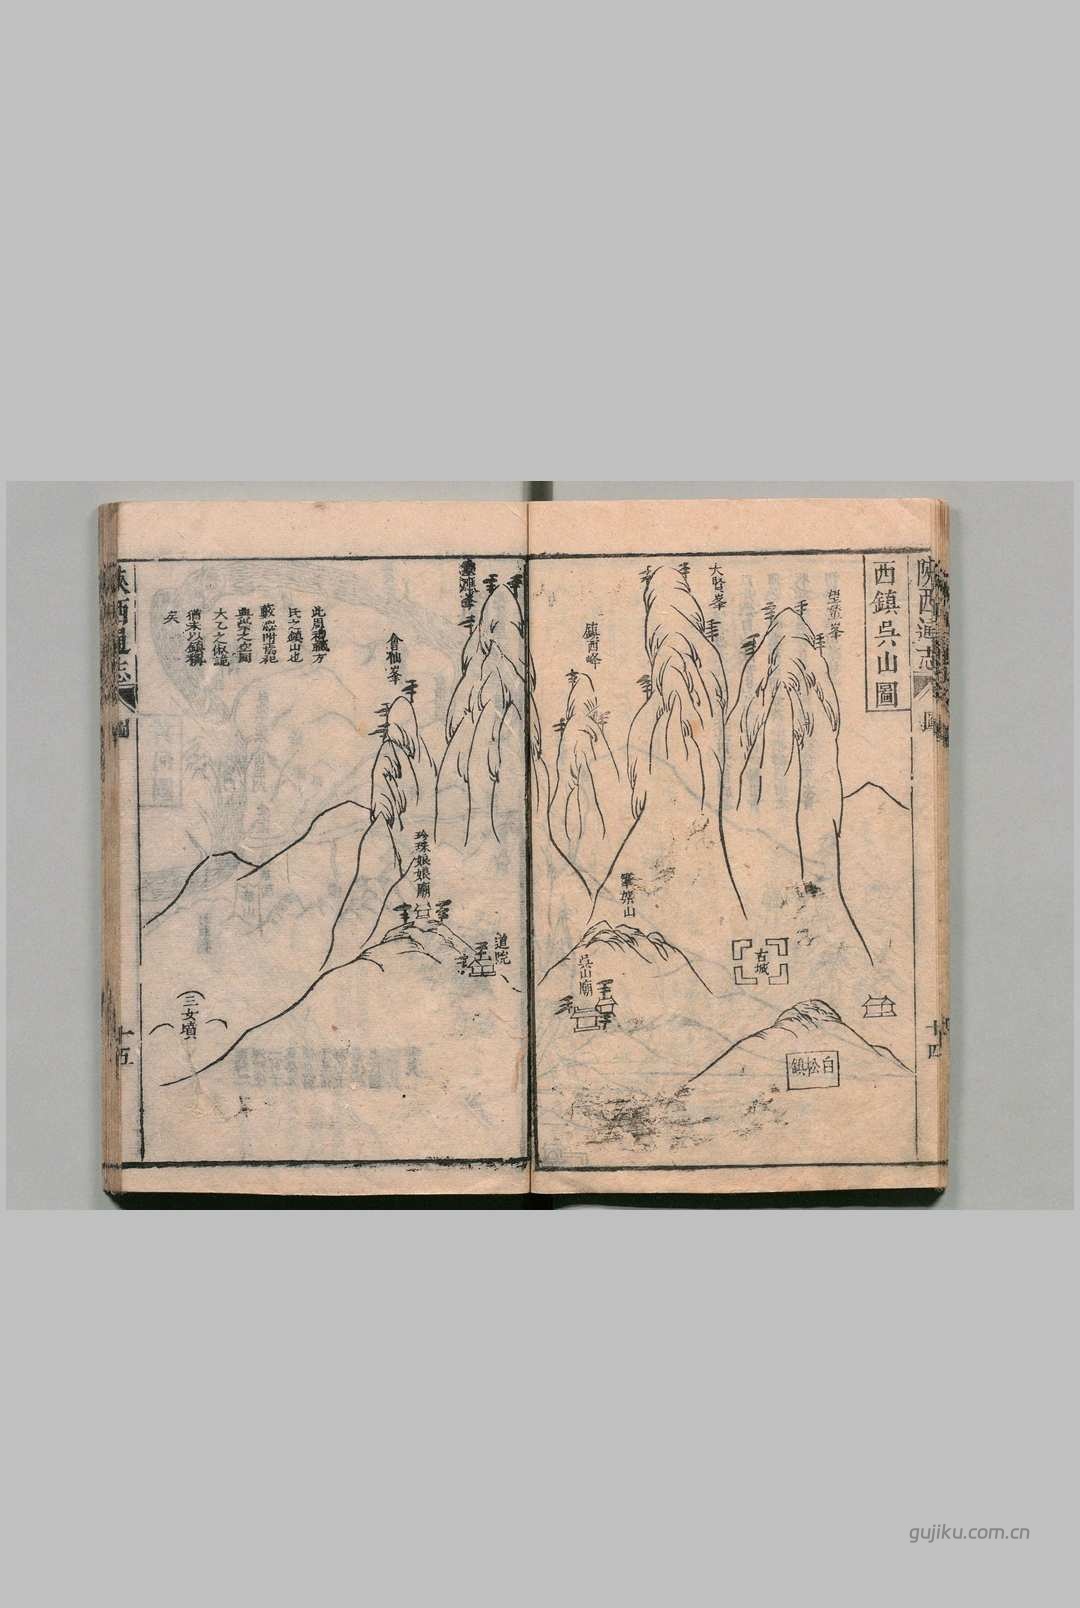 陝西通志
圖
十四
西鎮吳山圖
望輦峯
大賢峯
鎮西峰
筆架山
古城
吳山廟
白松鎮
靈應峯
會仙峯
珍珠娘娘廟
道院
三女墳
此周禮職方
氏之鎮山也
大乙之
猶未以鎮稱
矣
陝西通志
圖
十五
gujiku.com.cn